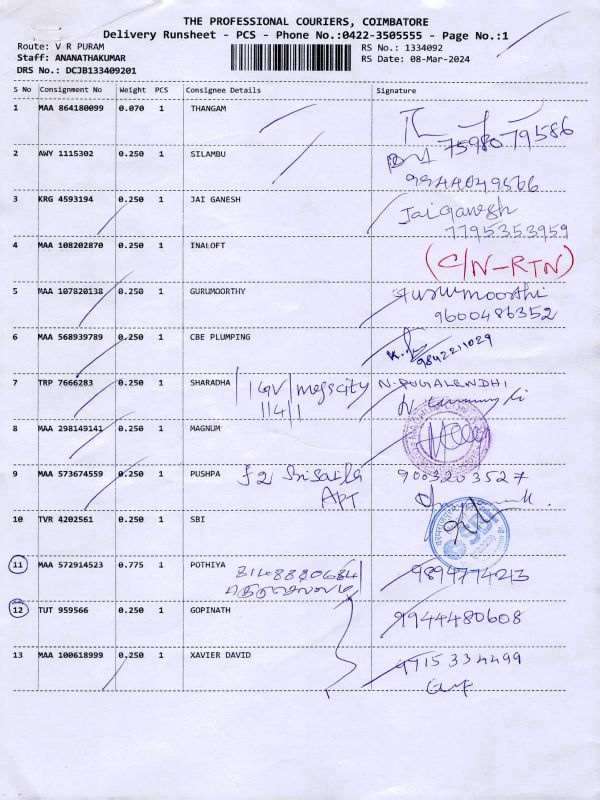 THE PROFESSIONAL COURIERS, COIMBATORE
Delivery Runsheet - PCS - Phone No.:0422-3505555 - Page No.:1
Route: V R PURAM
Staff: ANANATHAKUMAR
DRS No.: DCJB133409201
RS No.: 1334092
RS Date: 08-Mar-2024
S No Consignment No Weight PCS Consignee Details Signature
1 MAA 864180099 0.070 1 THANGAM
75980 79586
2 AWY 1115302 0.250 1 SILAMBU
9944049566
3 KRG 4593194 0.250 1 JAI GANESH Jaiganesh
7795353959
4 MAA 108202870 0.250 1 INALOFT (C/N-RTN)
5 MAA 107820138 0.250 1 GURUMOORTHY Gurumoorthi
9600486352
6 MAA 568939789 0.250 1 CBE PLUMPING
9842211029
7 TRP 7666283 0.250 1 SHARADHA N. PUGALENDHI
114/1
8 MAA 298149141 0.250 1 MAGNUM
9 MAA 573674559 0.250 1 PUSHPA F2 9003203527
APT
10 TVR 4202561 0.250 1 SBI
11 MAA 572914523 0.775 1 POTHIYA 9894774213
8148880684
12 TUT 959566 0.250 1 GOPINATH 9944480608
13 MAA 100618999 0.250 1 XAVIER DAVID 9715334499